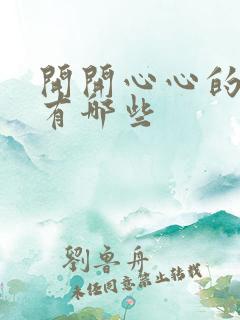 開開心心的
有哪些
劉魯舟
未經同意禁止轉載